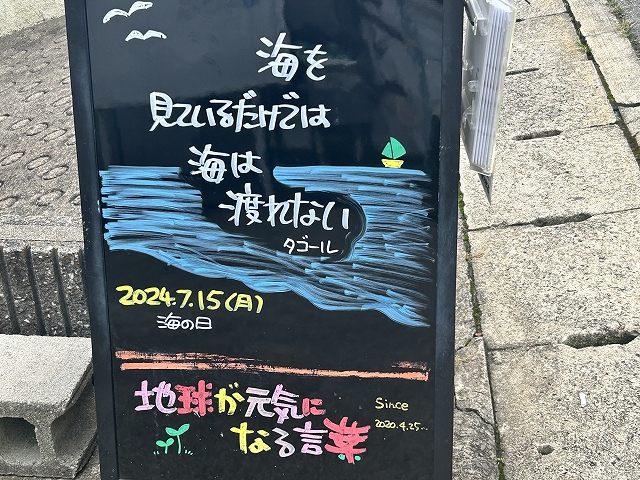 海を
見ているだけでは
海は
渡れない
タゴール
2024.7.15(月)
海の日
地球が元気に
なる言葉
Since
2020.4.25...